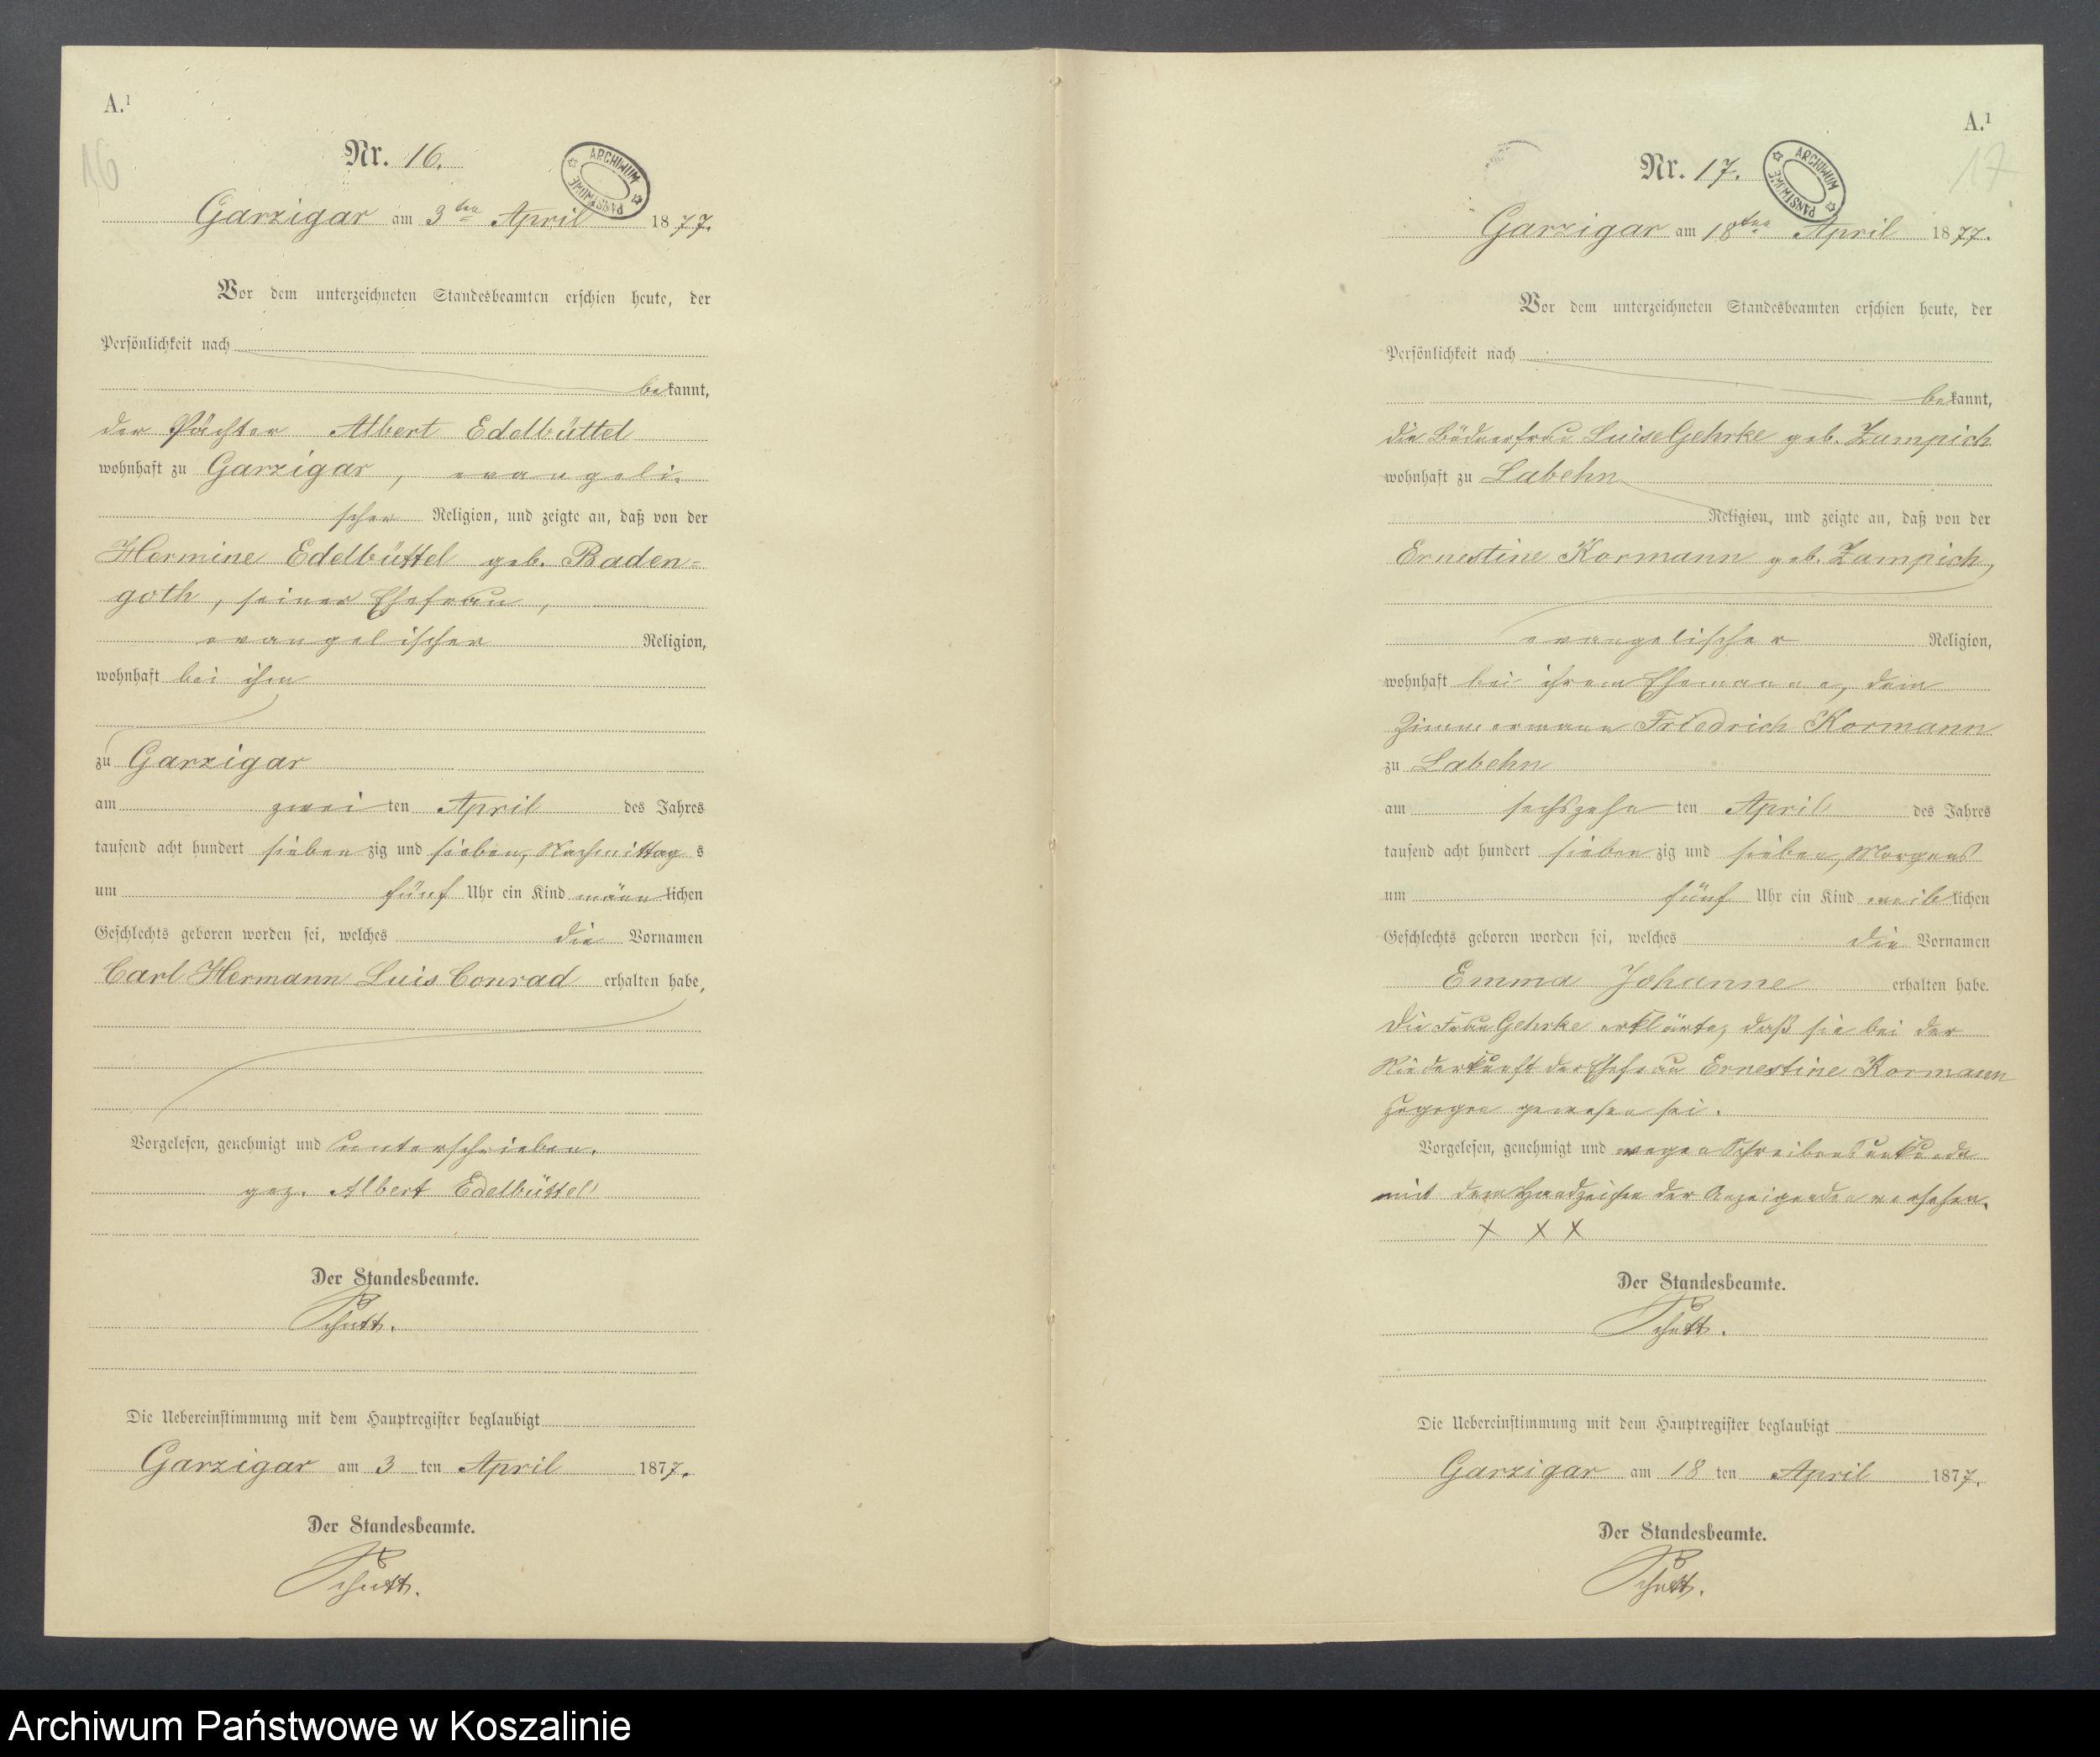 A.¹
16
Nr. 16.
ARCHIWUM PAŃSTWOWE
Garzigar am 3ten April 1877.
Vor dem unterzeichneten Standesbeamten erschien heute, der
Persönlichkeit nach
bekannt,
der Pächter Albert Edelbüttel
wohnhaft zu Garzigar, evangeli-
scher Religion, und zeigte an, daß von der
Hermine Edelbüttel geb. Baden-
goth, seiner Ehefrau,
evangelischer Religion,
wohnhaft bei ihm
zu Garzigar
am zwei ten April des Jahres
tausend acht hundert sieben zig und sieben, Nachmittag s
um fünf Uhr ein Kind männ lichen
Geschlechts geboren worden sei, welches die Vornamen
Carl Hermann Luis Conrad erhalten habe,
Vorgelesen, genehmigt und unterschrieben.
gez. Albert Edelbüttel
Der Standesbeamte.
Schutt.
Die Uebereinstimmung mit dem Hauptregister beglaubigt
Garzigar am 3 ten April 1877.
Der Standesbeamte.
Schutt.
A.¹
17
Nr. 17.
ARCHIWUM PAŃSTWOWE
Garzigar am 18ten April 1877.
Vor dem unterzeichneten Standesbeamten erschien heute, der
Persönlichkeit nach
bekannt,
die Büdnerfrau Luise Gehrke geb. Zumpich
wohnhaft zu Labehn
Religion, und zeigte an, daß von der
Ernestine Kormann geb. Zampich,
evangelischer Religion,
wohnhaft bei ihrem Ehemanne, dem
Zimmermann Friedrich Kormann
zu Labehn
am sechszehn ten April des Jahres
tausend acht hundert sieben zig und sieben, Morgens
um fünf Uhr ein Kind weib lichen
Geschlechts geboren worden sei, welches die Vornamen
Emma Johanne erhalten habe.
Die Frau Gehrke erklärte, daß sie bei der
Niederkunft der Ehefrau Ernestine Kormann
zugegen gewesen sei.
Vorgelesen, genehmigt und wegen Schreibensunkunde
mit dem Handzeichen der Anzeigenden versehen.
X X X
Der Standesbeamte.
Schutt.
Die Uebereinstimmung mit dem Hauptregister beglaubigt
Garzigar am 18 ten April 1877.
Der Standesbeamte.
Schutt.
Archiwum Państwowe w Koszalinie